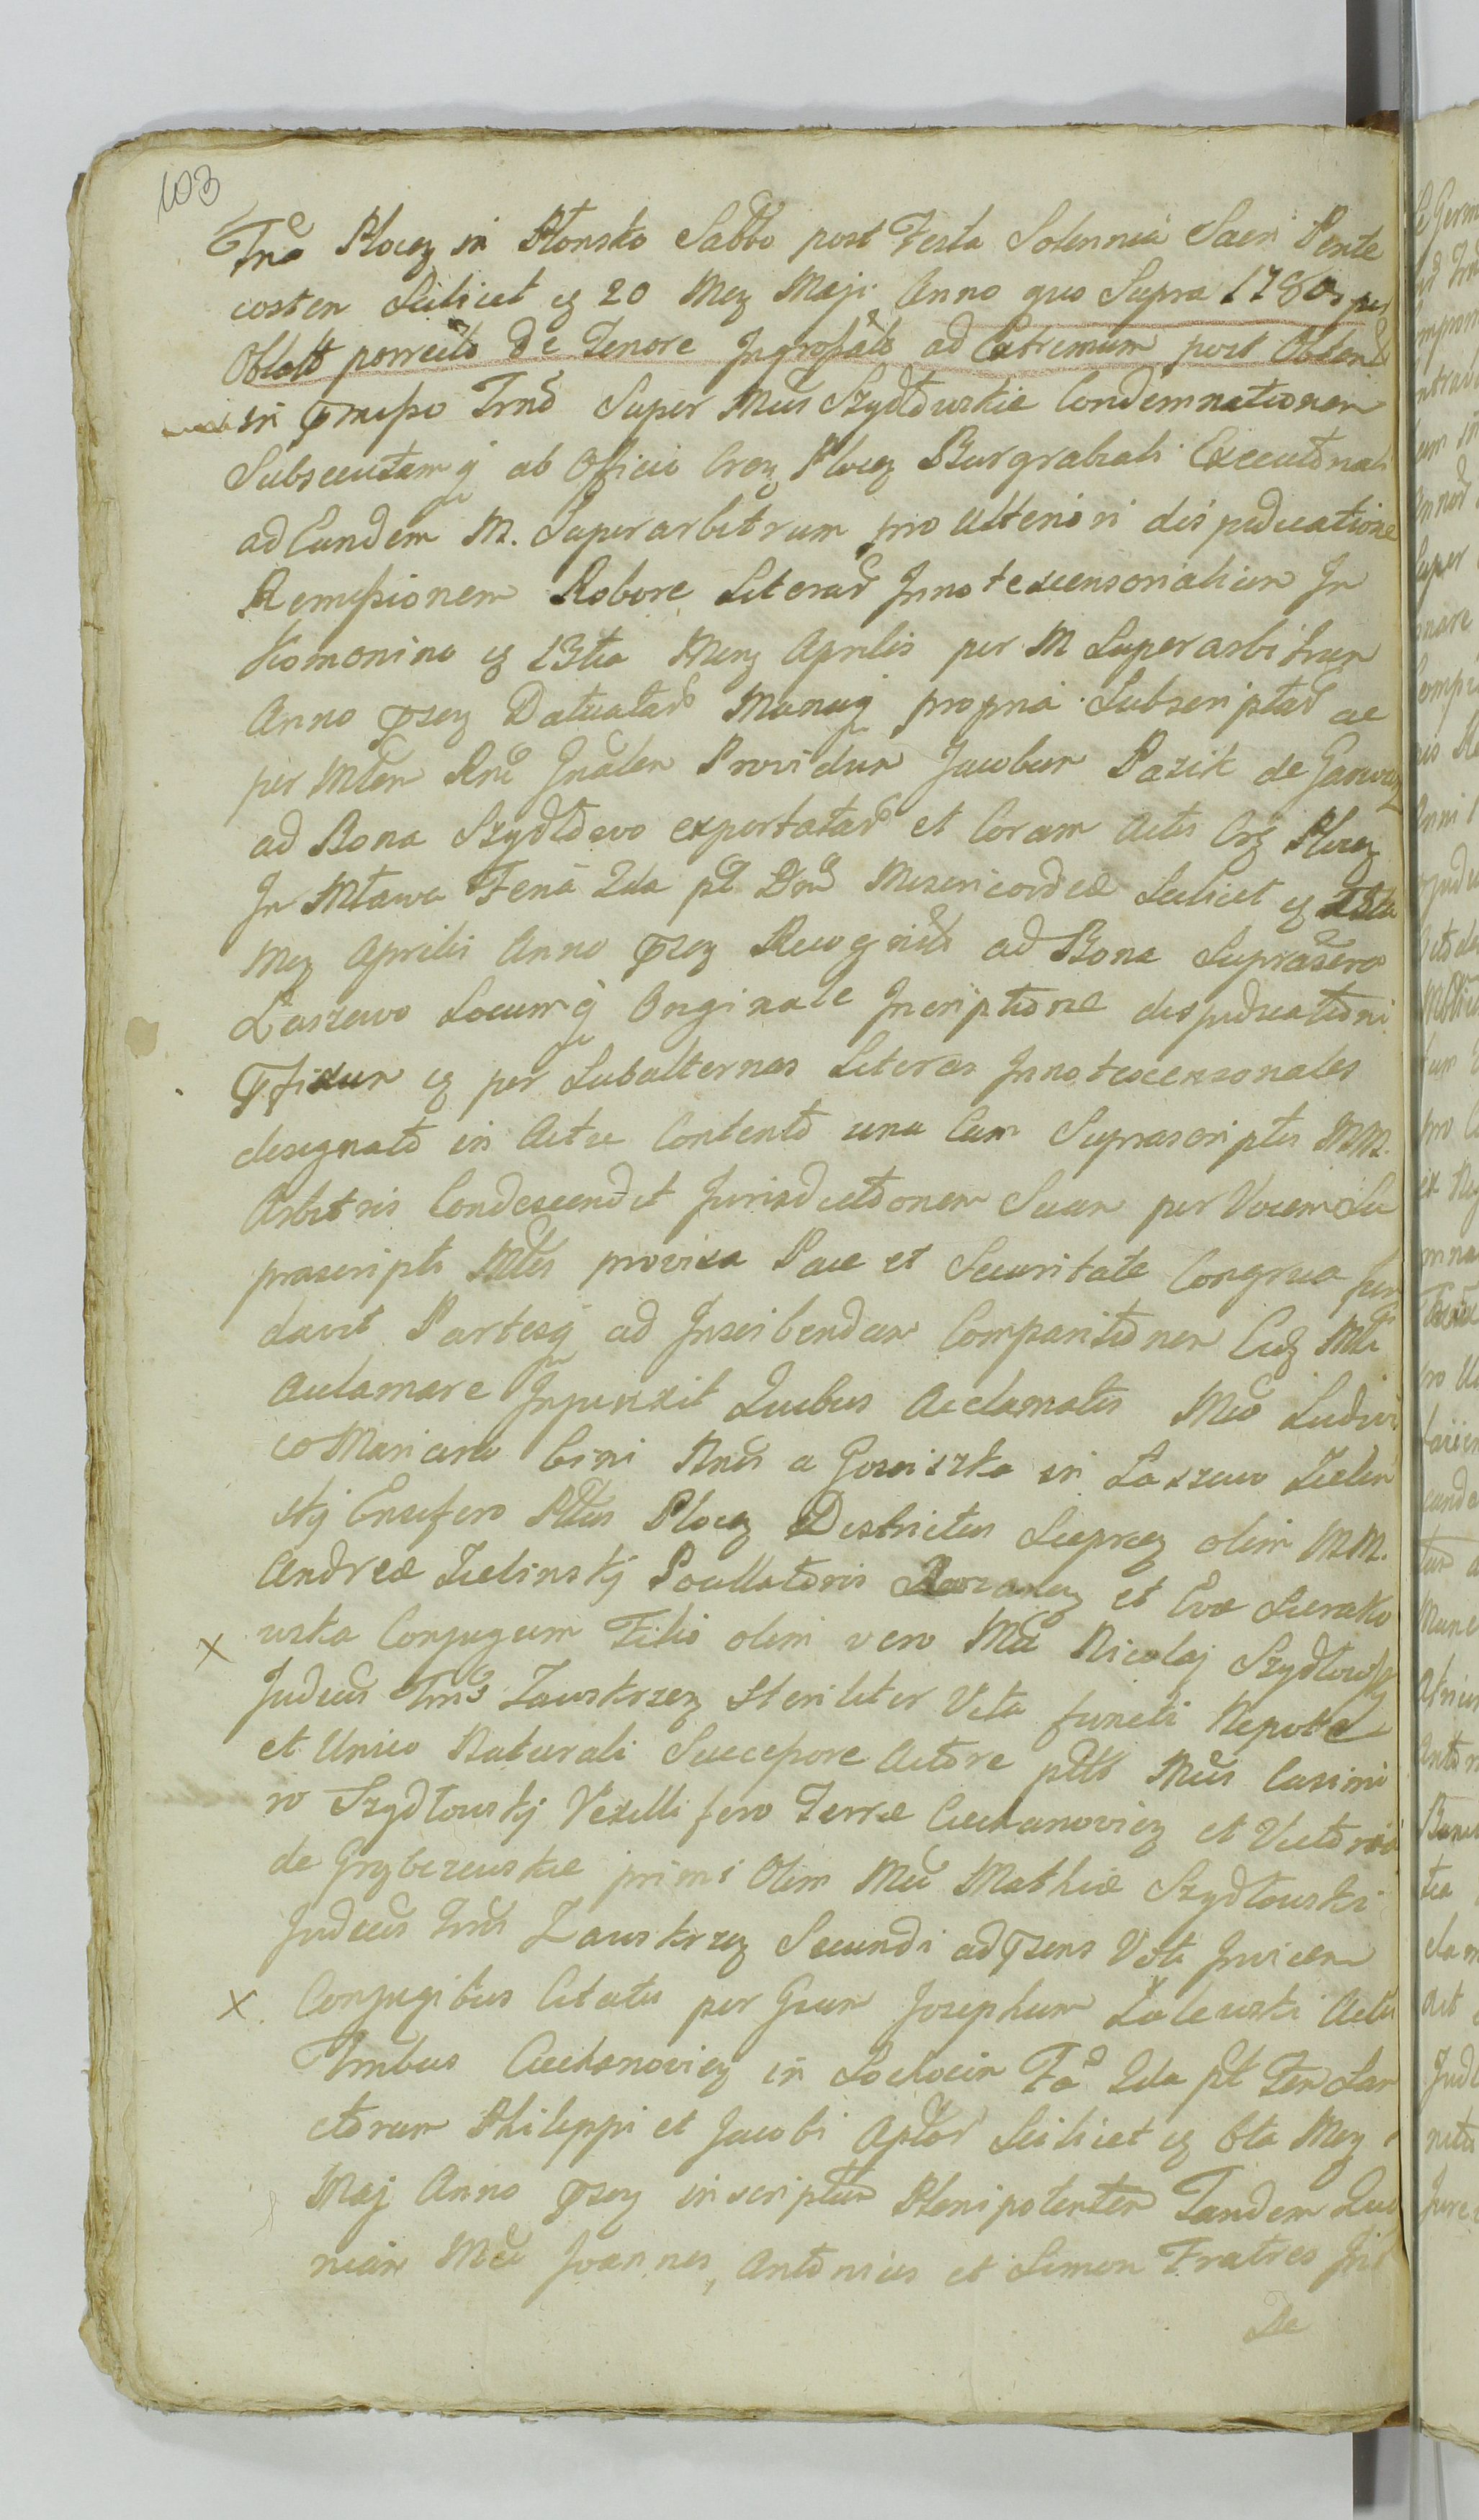 103
Trã Plocen in Płonsko Sabbo post Festa Solennia Sacri Pente
costen Scilicet ꝫ 20 Men Maji Anno quo Supra 1780 per
Oblatt porrectt De Tenore Ingrossatt ad Extremum post Obtent
in pmisso Trno Super Mcos Szydłowskie Condemnationem
Subsecutamq ab Officio Cren Plocen Burgrabiali Executnali
ad Eundem M. Superarbitrum pro Ulteriori dispudicatione
Remissionem Robore Literar Innotescensorialium In
Komonino ꝫ 13tia Men Aprilis per M Superarbitrum
Anno psen Datuatar Manuq propria Subscriptar ac
per Mtem Rni Gnalem Providum Jacobum Pazik de
ad Bona Szydłdowo exportatar et Coram Actis Plocen
In Mława Feria 2da pt Dom Misericordiæ Scilicet ꝫ
Men Aprilis Anno psen Recognitt ad Bona
Łaszewo Locumq Originale Incriptione disjudicationi
pfixum ꝫ per Subalternas Literas Innotescensonales
designatt in Actu Contentt una Cum Suprascriptis MM.
Arbitris Condescendit Jurisdictionem Suam per Vocem Su
prascripti Mtlis provisa Pace et Securitate Congrua fun
davit Partesq ad Inscibendam Comparitionem Eidꝫ Mtli
Aclamare Injunxit Quibus Acclamatis Mco Ludovi
co Mariano bini Nnis a Gosciszka in Łaszewo Zielin
skj Ensifero Pltus Plocen Districtus Sieprcen olim MM.
Andreæ Zielinskj Pocillatoris Rozanen et Evæ Sierako
wska Conjugum Filio olim vero Mci Nicolaj Szydłowskj
Judicis Trris Zawskrzen Steriliter Vita functi Nepote
et Unico Naturali Successore Actore pltt Mcis Casimi
ro Szydłowskj Vexillifero Terræ Ciechanovien et Victoria
de Grzybczewskie primi Olim Mci Mathiæ Szydłowski
Judicis Trris Zawskrzen Secundi ad psens Voti Invicem
Conjugibus Citatis per Gsum Josephum Zalewski Actis
Trribus Ciechanovien in Sochocin Fa 2da pt Fer San
ctorum Philippi et Jacobi Apłor Scilicet ꝫ 8ta Men
Maj Anno psen inscriptum Plenipotentem Tandem
Mci Joannes, Antonius et Simon Fratres
De